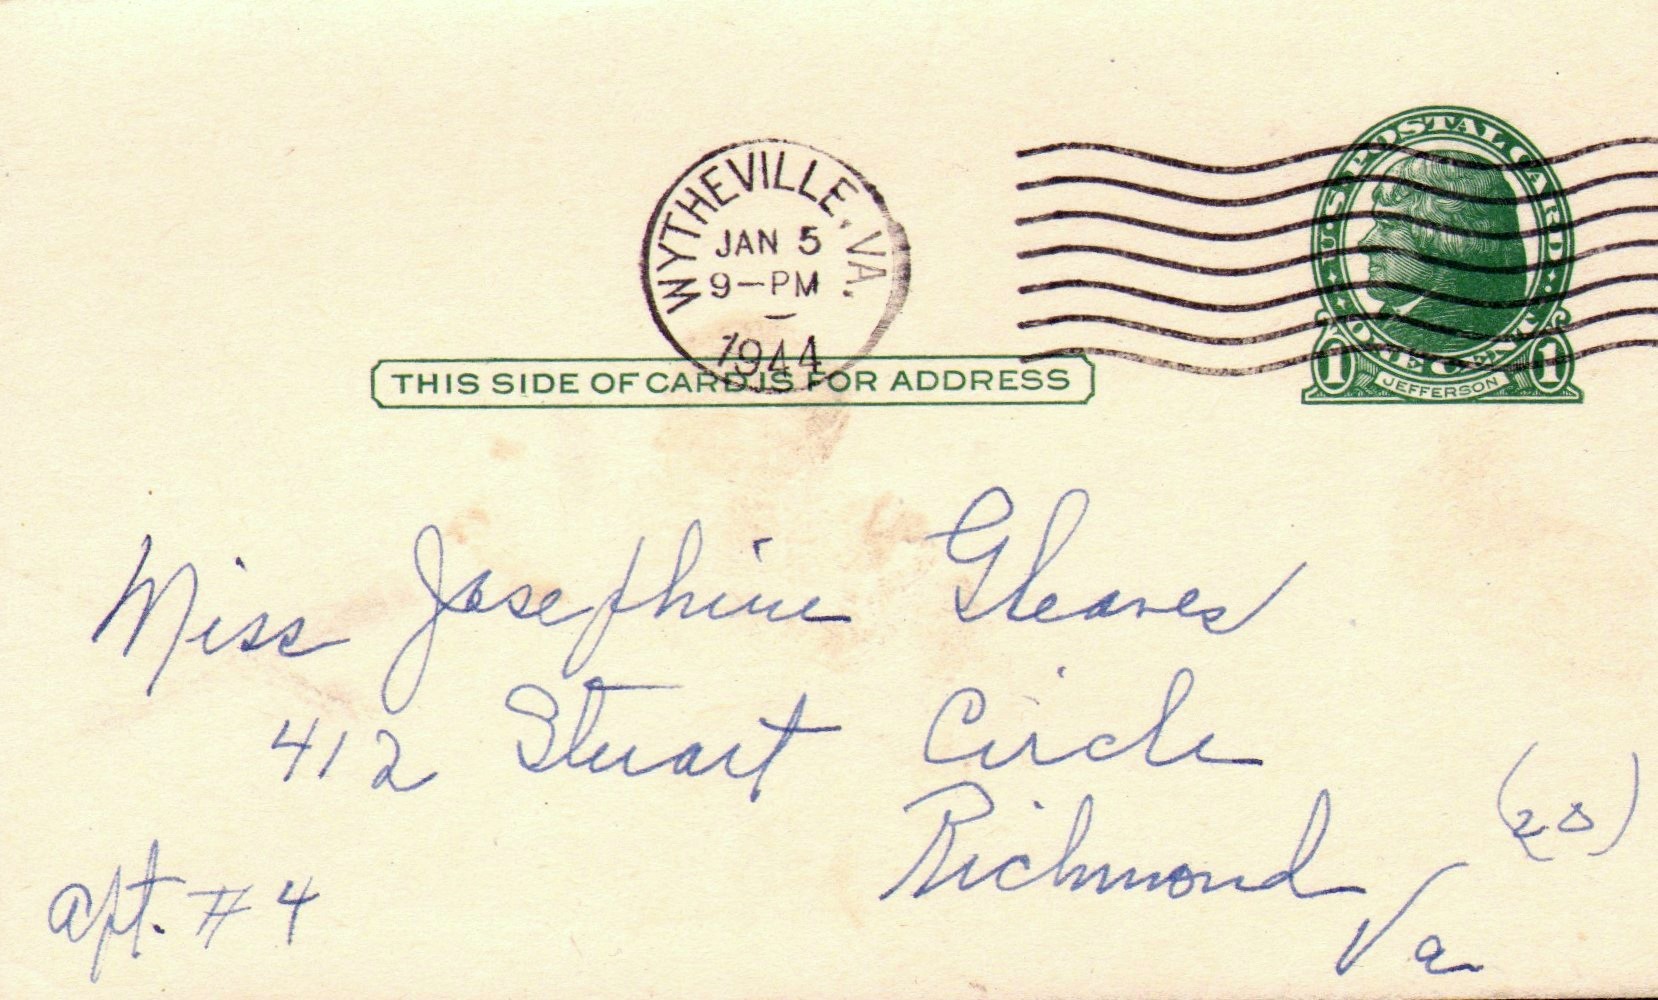 WYTHEVILLE, VA.
JAN 5
9-PM
1944
U.S. POSTAL CARD
ONE CENT
1 JEFFERSON 1
THIS SIDE OF CARD IS FOR ADDRESS
Miss Josephine Gleaves
412 Stuart Circle
Richmond (20)
Apt. #4 Va